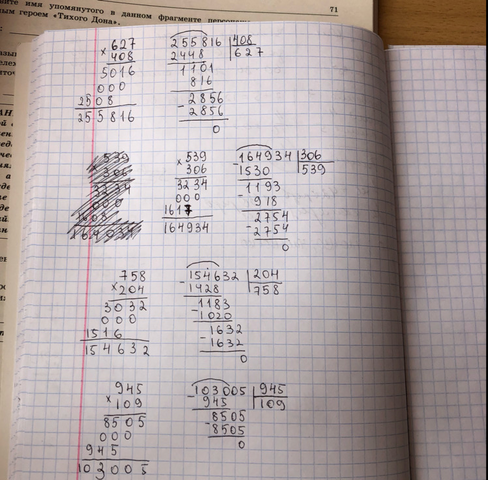 ите имя упомянутого в данном фрагменте
71
ным героем «Тихого Дона».
× 627
408
5016
000
2508
255816
255816 |408
2448 627
1101
816
- 2856
2856
0
539
306
3234
000
× 539
306
3234
000
1617
164934
-164934 |306
1530 539
1193
- 918
2754
- 2754
0
758
×204
3032
000
1516
154632
-154632 |204
1428 758
1183
-1020
1632
- 1632
0
945
× 109
8505
000
945
103005
-103005 |945
945 109
8505
- 8505
0